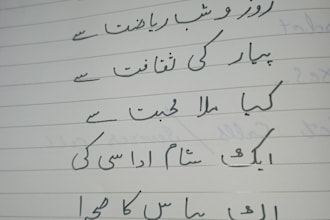 روز و شب ریاضت سے
پیار کی ثقافت سے
کیا ملا محبت سے
ایک شام اداسی کی
ایک پیاس کا صحرا